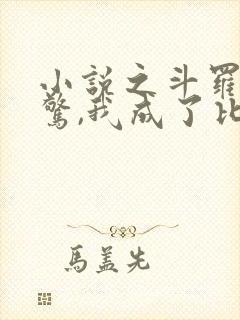 小説之斗羅
驚,我成了比
馬盖先